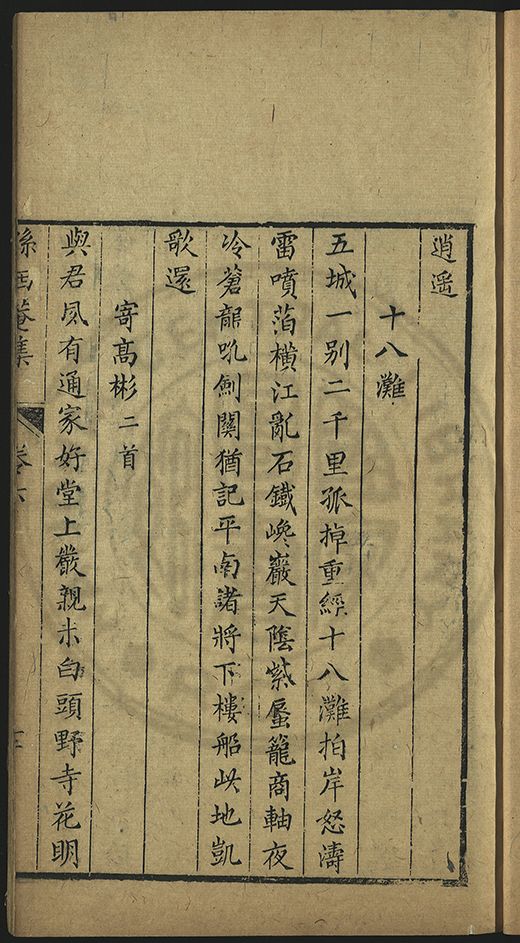 逍遥
十八灘
五城一别二千里孤掉重經十八灘拍岸怒濤
雷噴薄橫江亂石鐵巉巖天陰紫蜃籠商軸夜
冷蒼龍吼劍關猶記平南諸將下樓船此地凱
歌還
寄髙彬二首
與君夙有通家好堂上嚴親未白頭野寺花明
孫西菴集
卷六